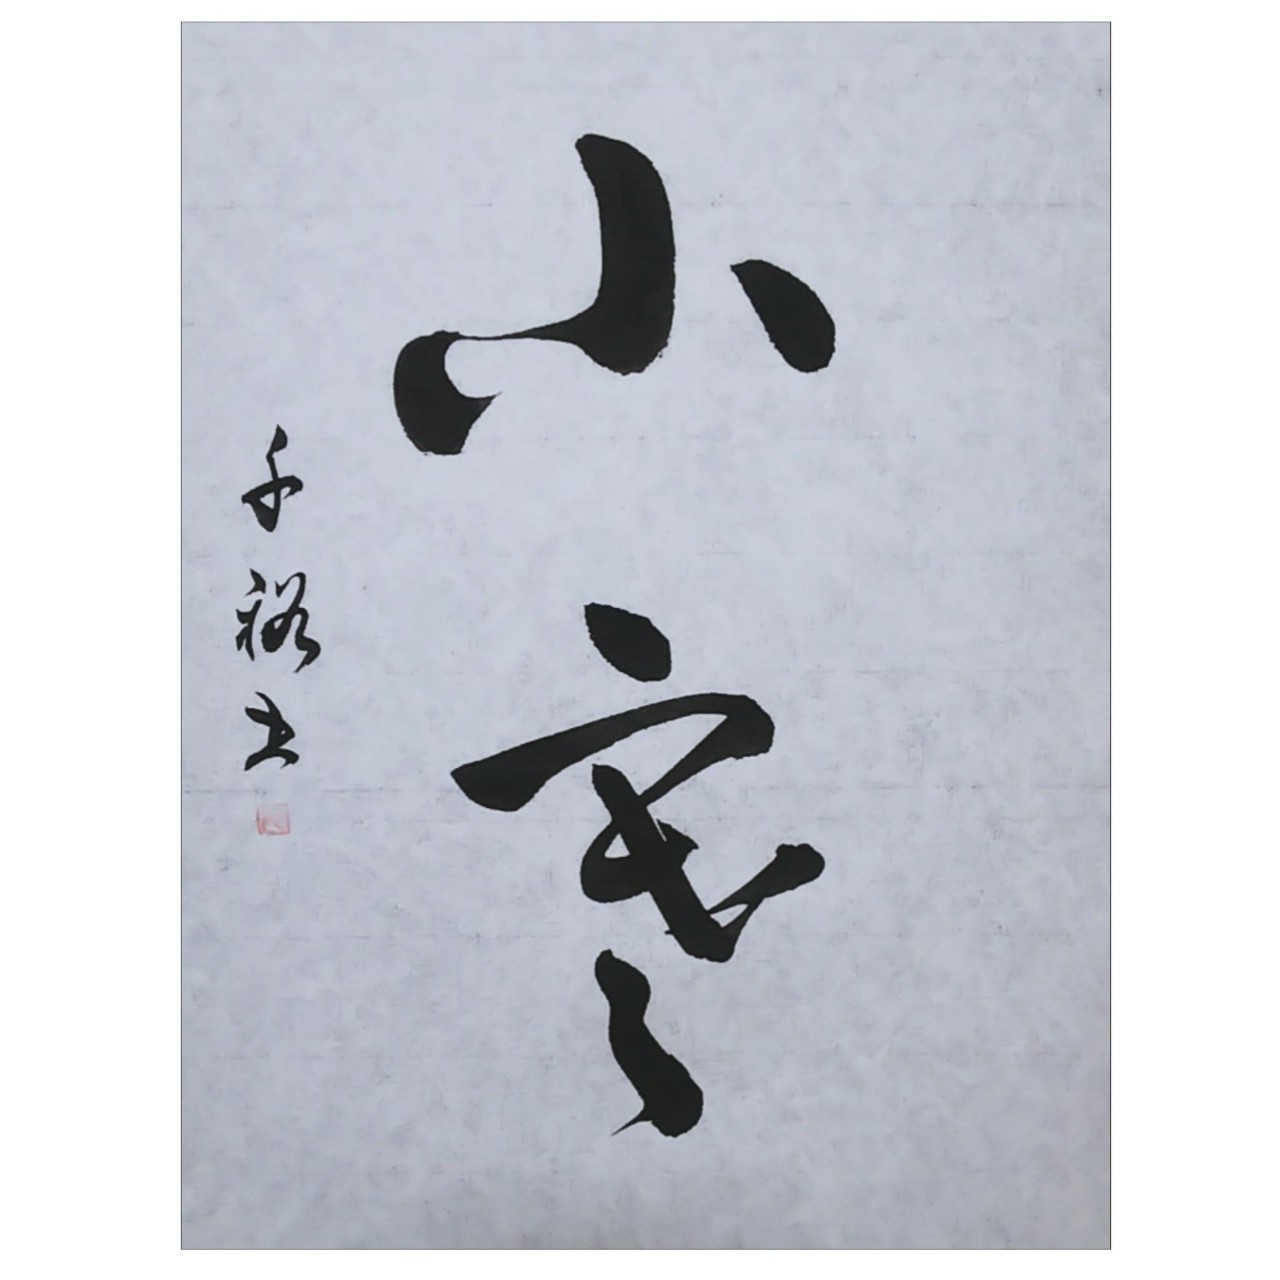 小寒
千裕書